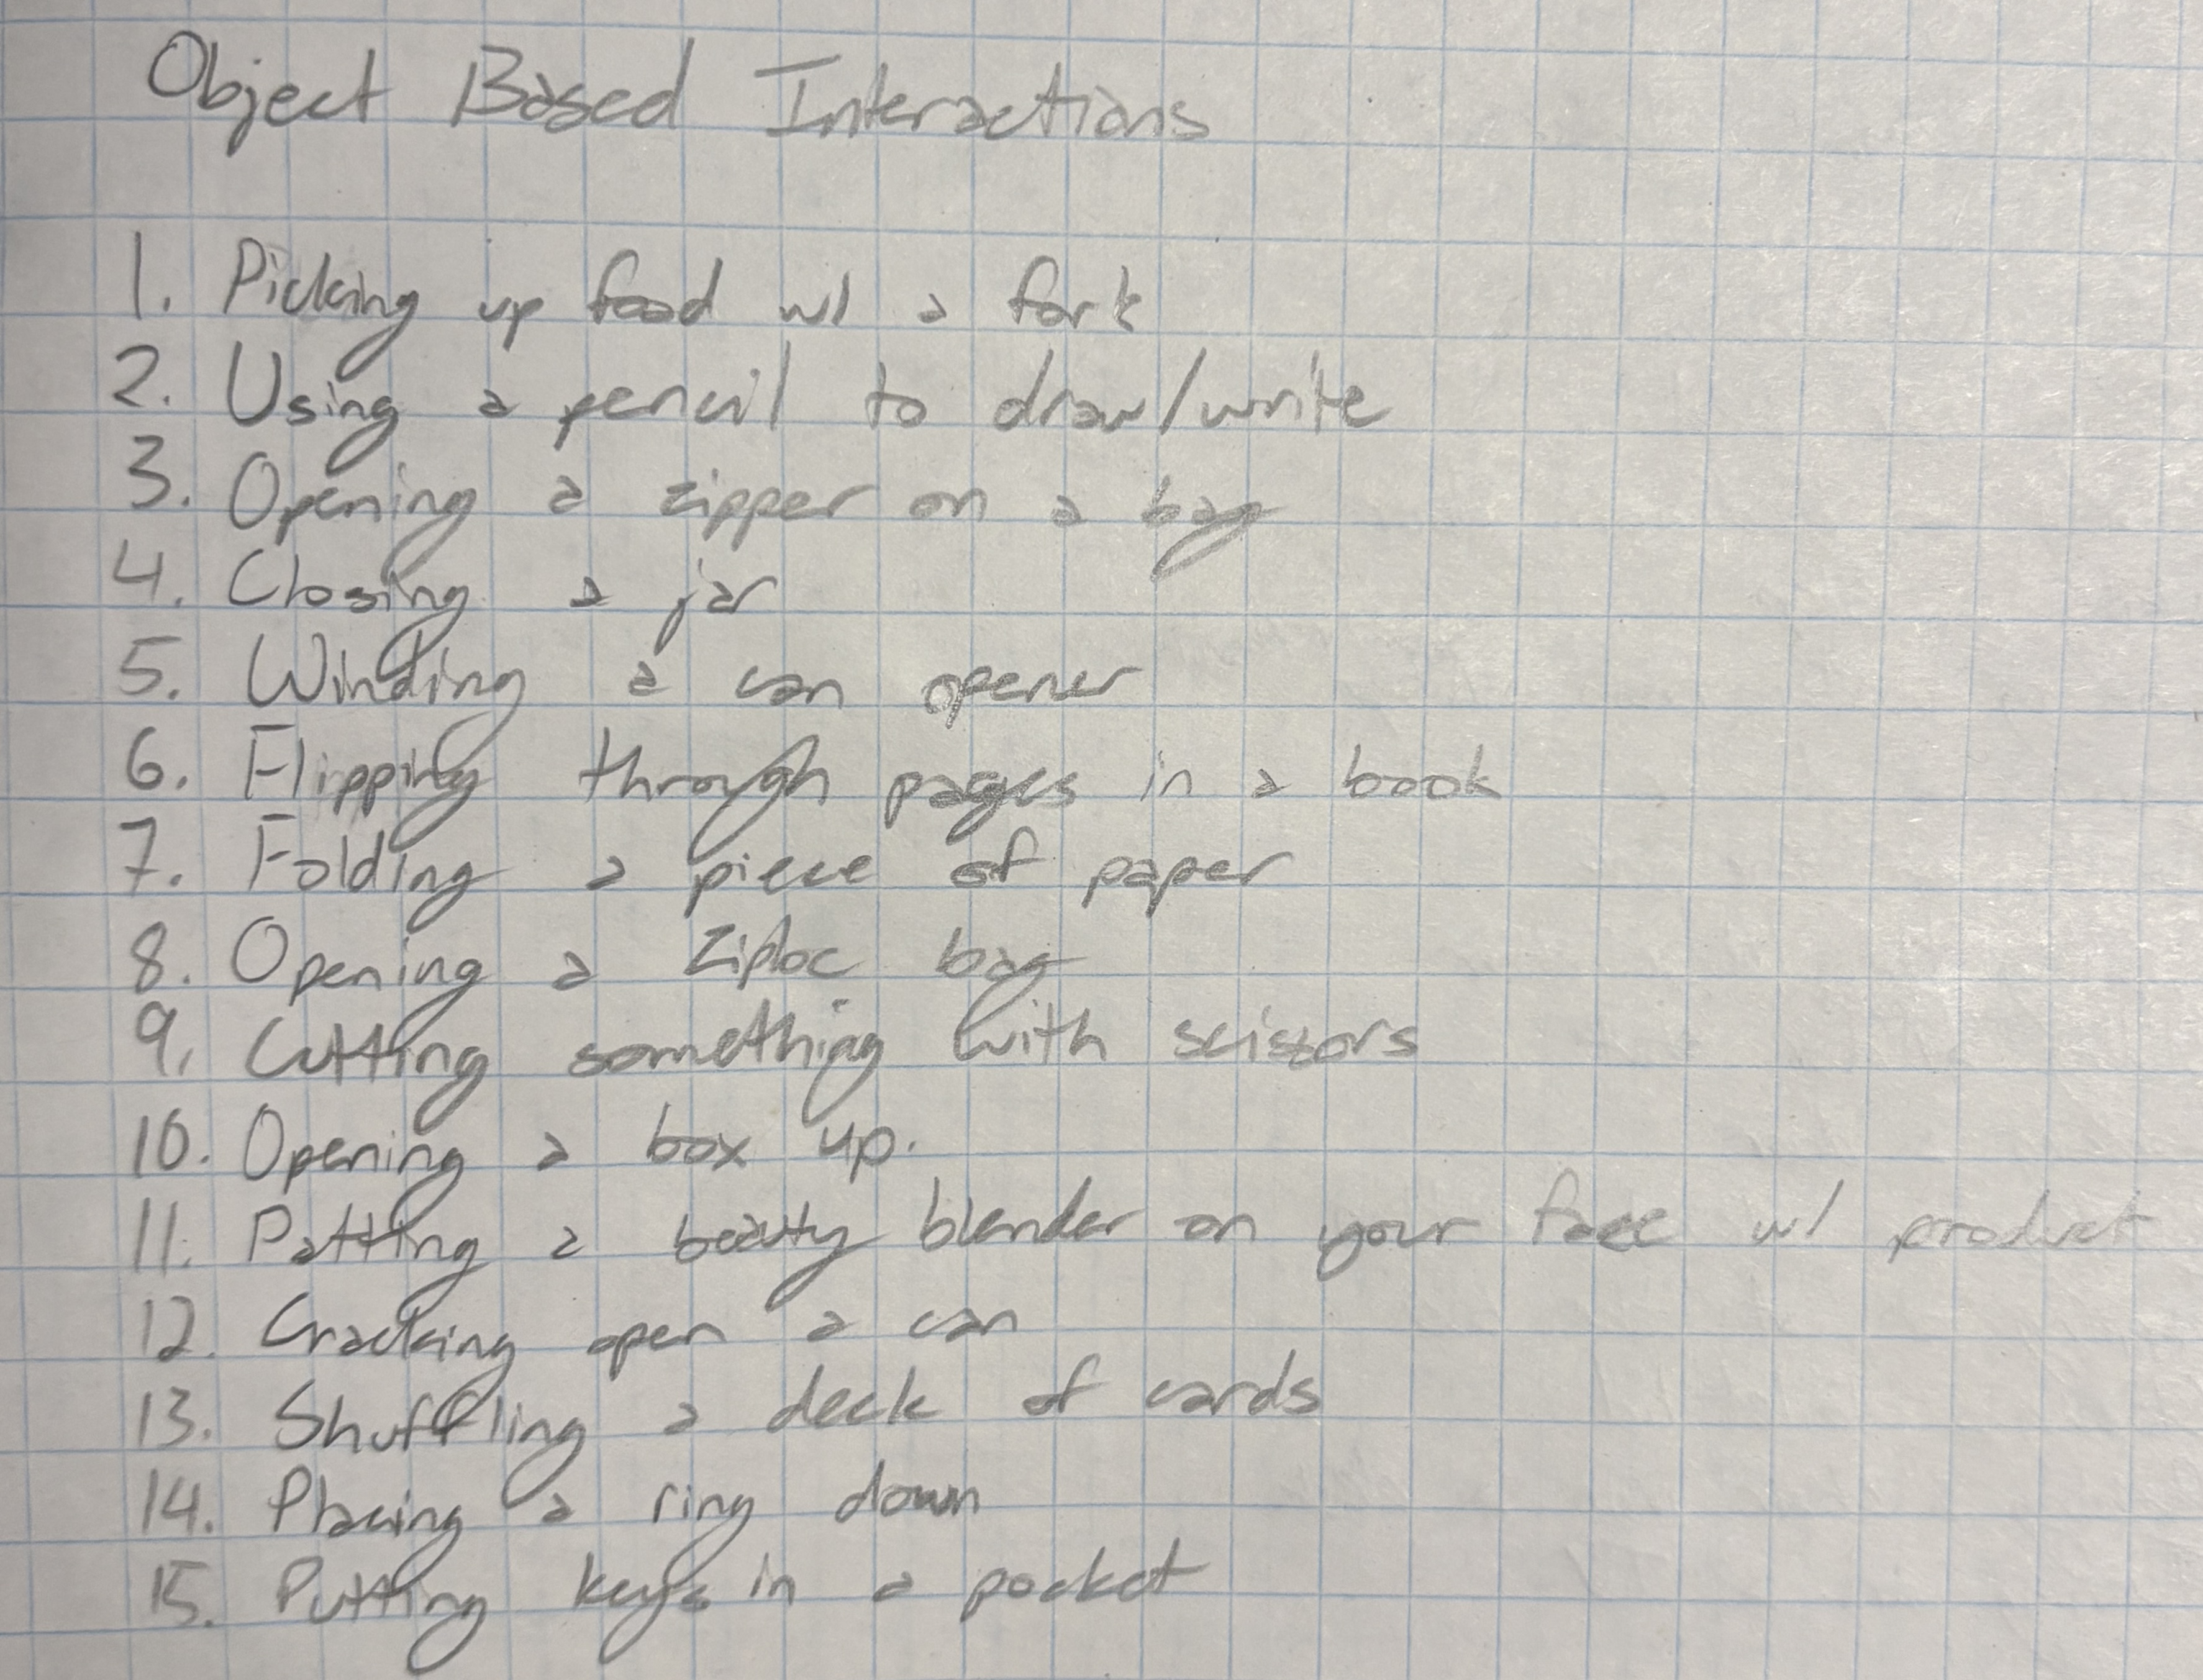 Object Based Interactions
1. Picking up food w/ a fork
2. Using a pencil to draw/write
3. Opening a zipper on a bag
4. Closing a jar
5. Winding a can opener
6. Flipping through pages in a book
7. Folding a piece of paper
8. Opening a Ziploc bag
9. Cutting something with scissors
10. Opening a box up.
11. Patting a beauty blender on your face w/ product
12. Cracking open a can
13. Shuffling a deck of cards
14. Placing a ring down
15. Putting keys in a pocket